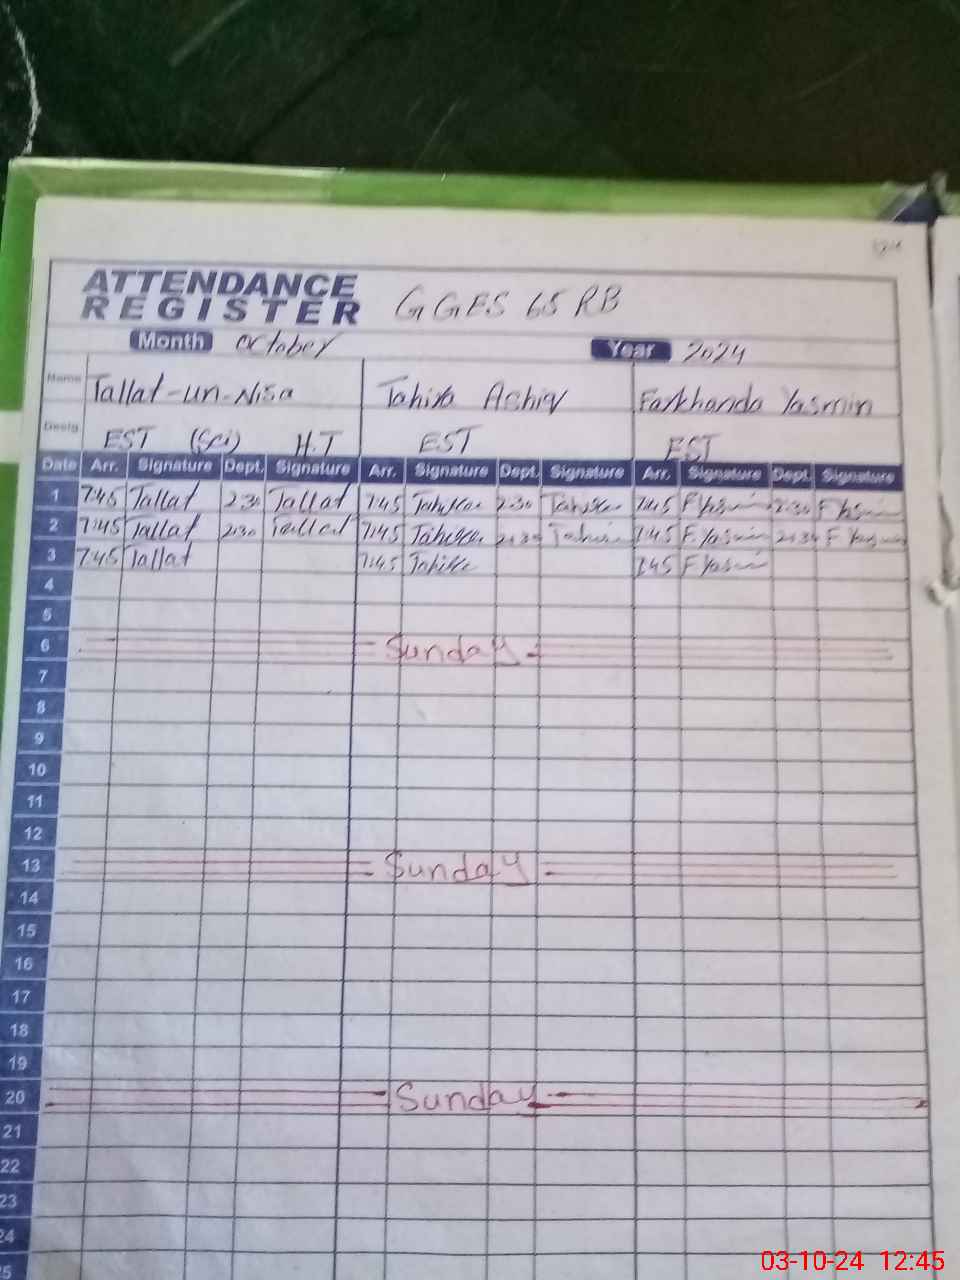 ATTENDANCE
REGISTER GGES 65 RB
Month October Year 2024
Name Tallat-un-Nisa Tahira Ashiq Farkhanda Yasmin
Desig. EST (Sci) H.T EST EST
Date Arr. Signature Dept. Signature Arr. Signature Dept. Signature Arr. Signature Dept. Signature
1 7:45 Tallat 2:30 Tallat 7:45 Tahira 2:30 Tahira 7:45 F Yasmin 2:30 F Yasmin
2 7:45 Tallat 2:30 Tallat 7:45 Tahira 2:30 Tahira 7:45 F Yasmin 2:30 F Yasmin
3 7:45 Tallat 7:45 Tahira 7:45 F Yasmin
4
5
6 Sunday
7
8
9
10
11
12
13 Sunday
14
15
16
17
18
19
20 Sunday
21
22
23
24
25
03-10-24 12:45